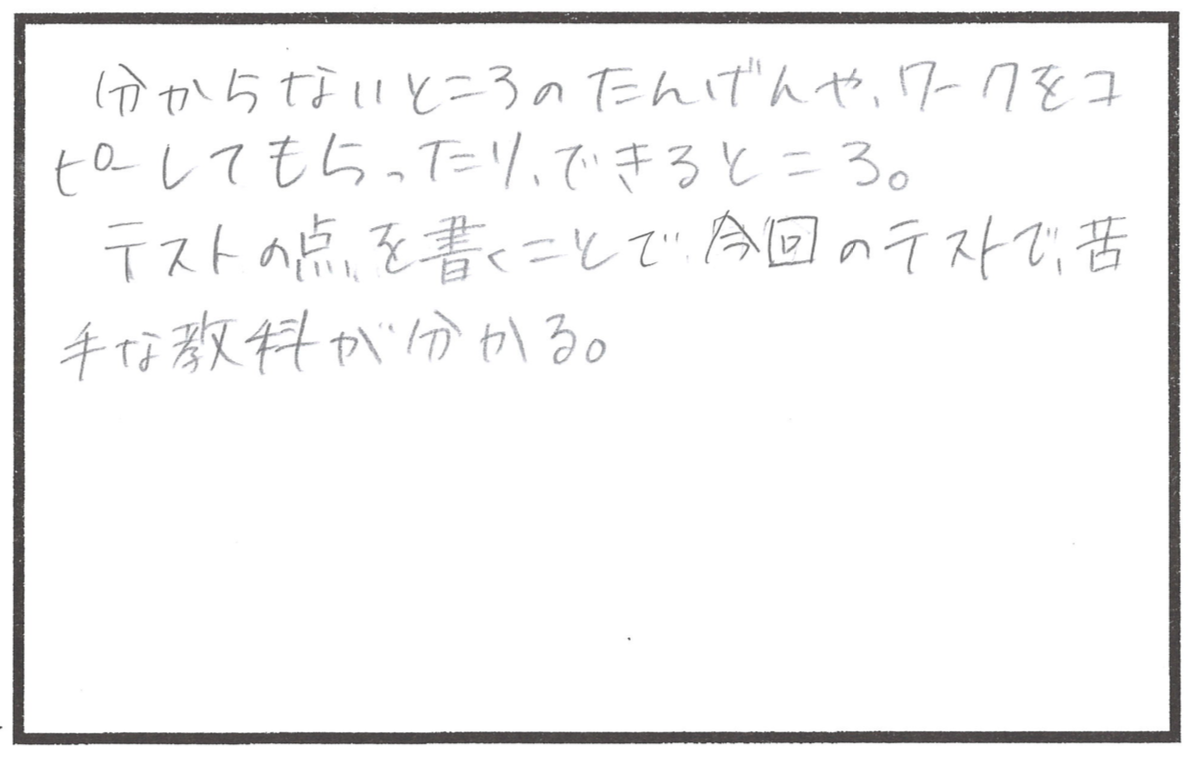 分からないところのたんげんや、ワークをコ
ピーしてもらったり、できるところ。
テストの点を書くことで、今回のテストで、苦
手な教科が分かる。